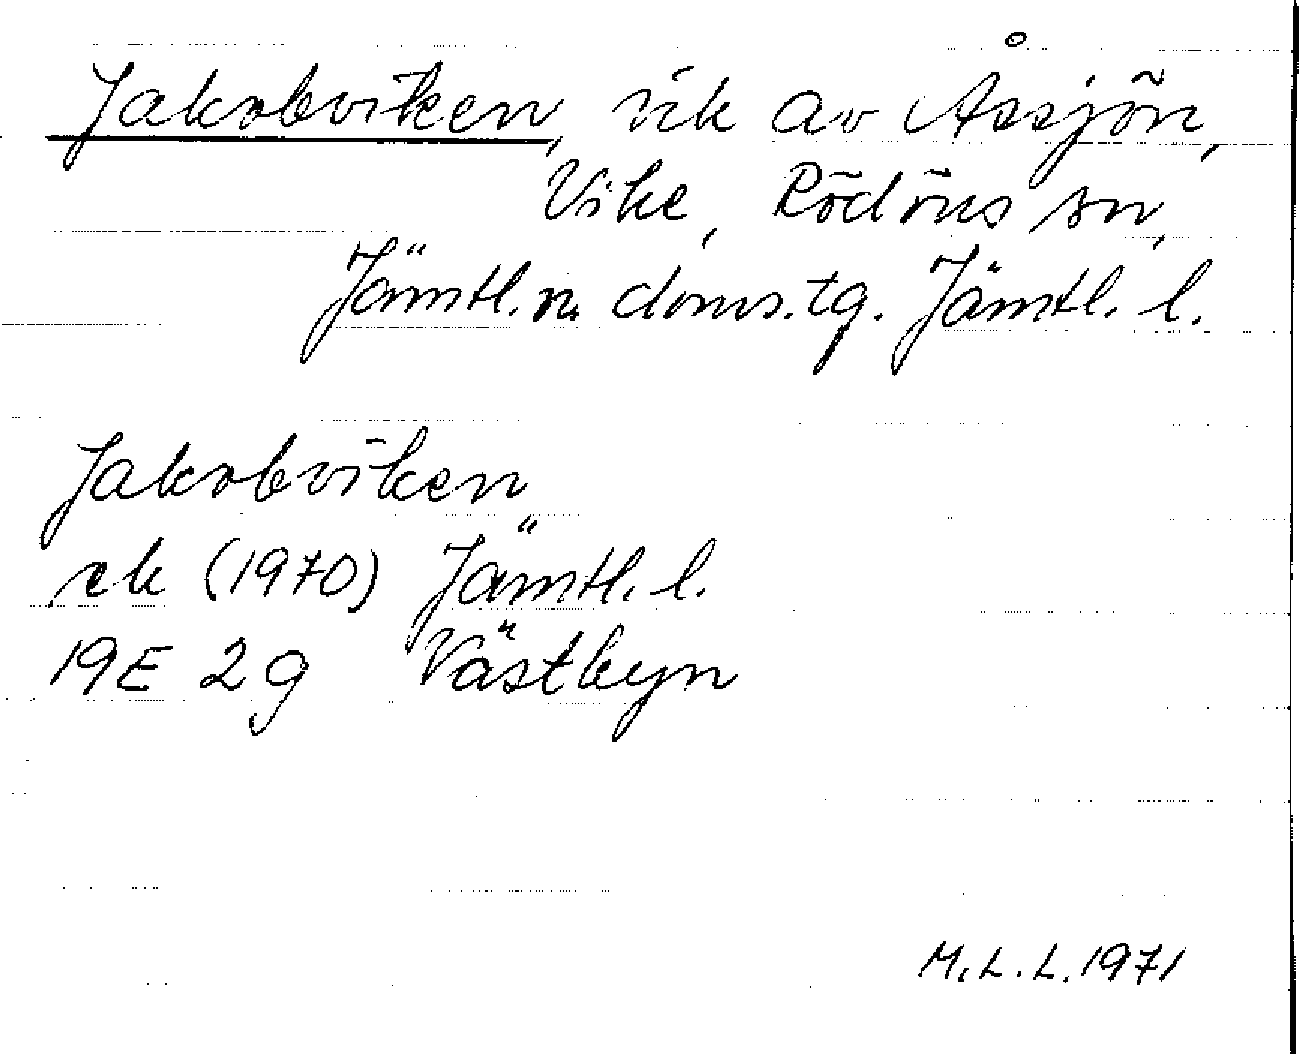 Jakobviken, vik av Åssjön,
Vike, Rödöns sn,
Jämtl. n. doms. tg. Jämtl. l.
Jakobviken
ek (1970) Jämtl. l.
19E 2g Västbyn
M. L. L. 1971